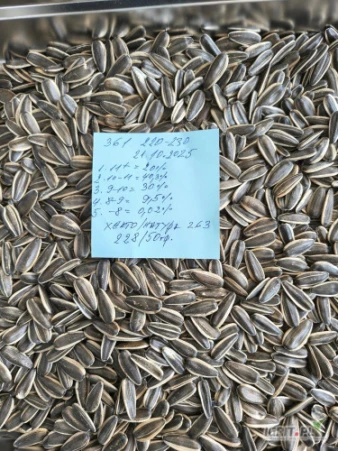 361 220-230
21.10.2025
1. 11+ = 20%
2. 10-11 = 40,3%
3. 9-10 = 30%
4. 8-9 = 9,5%
5. -8 = 0,02%
/натура 263
228/50гр.